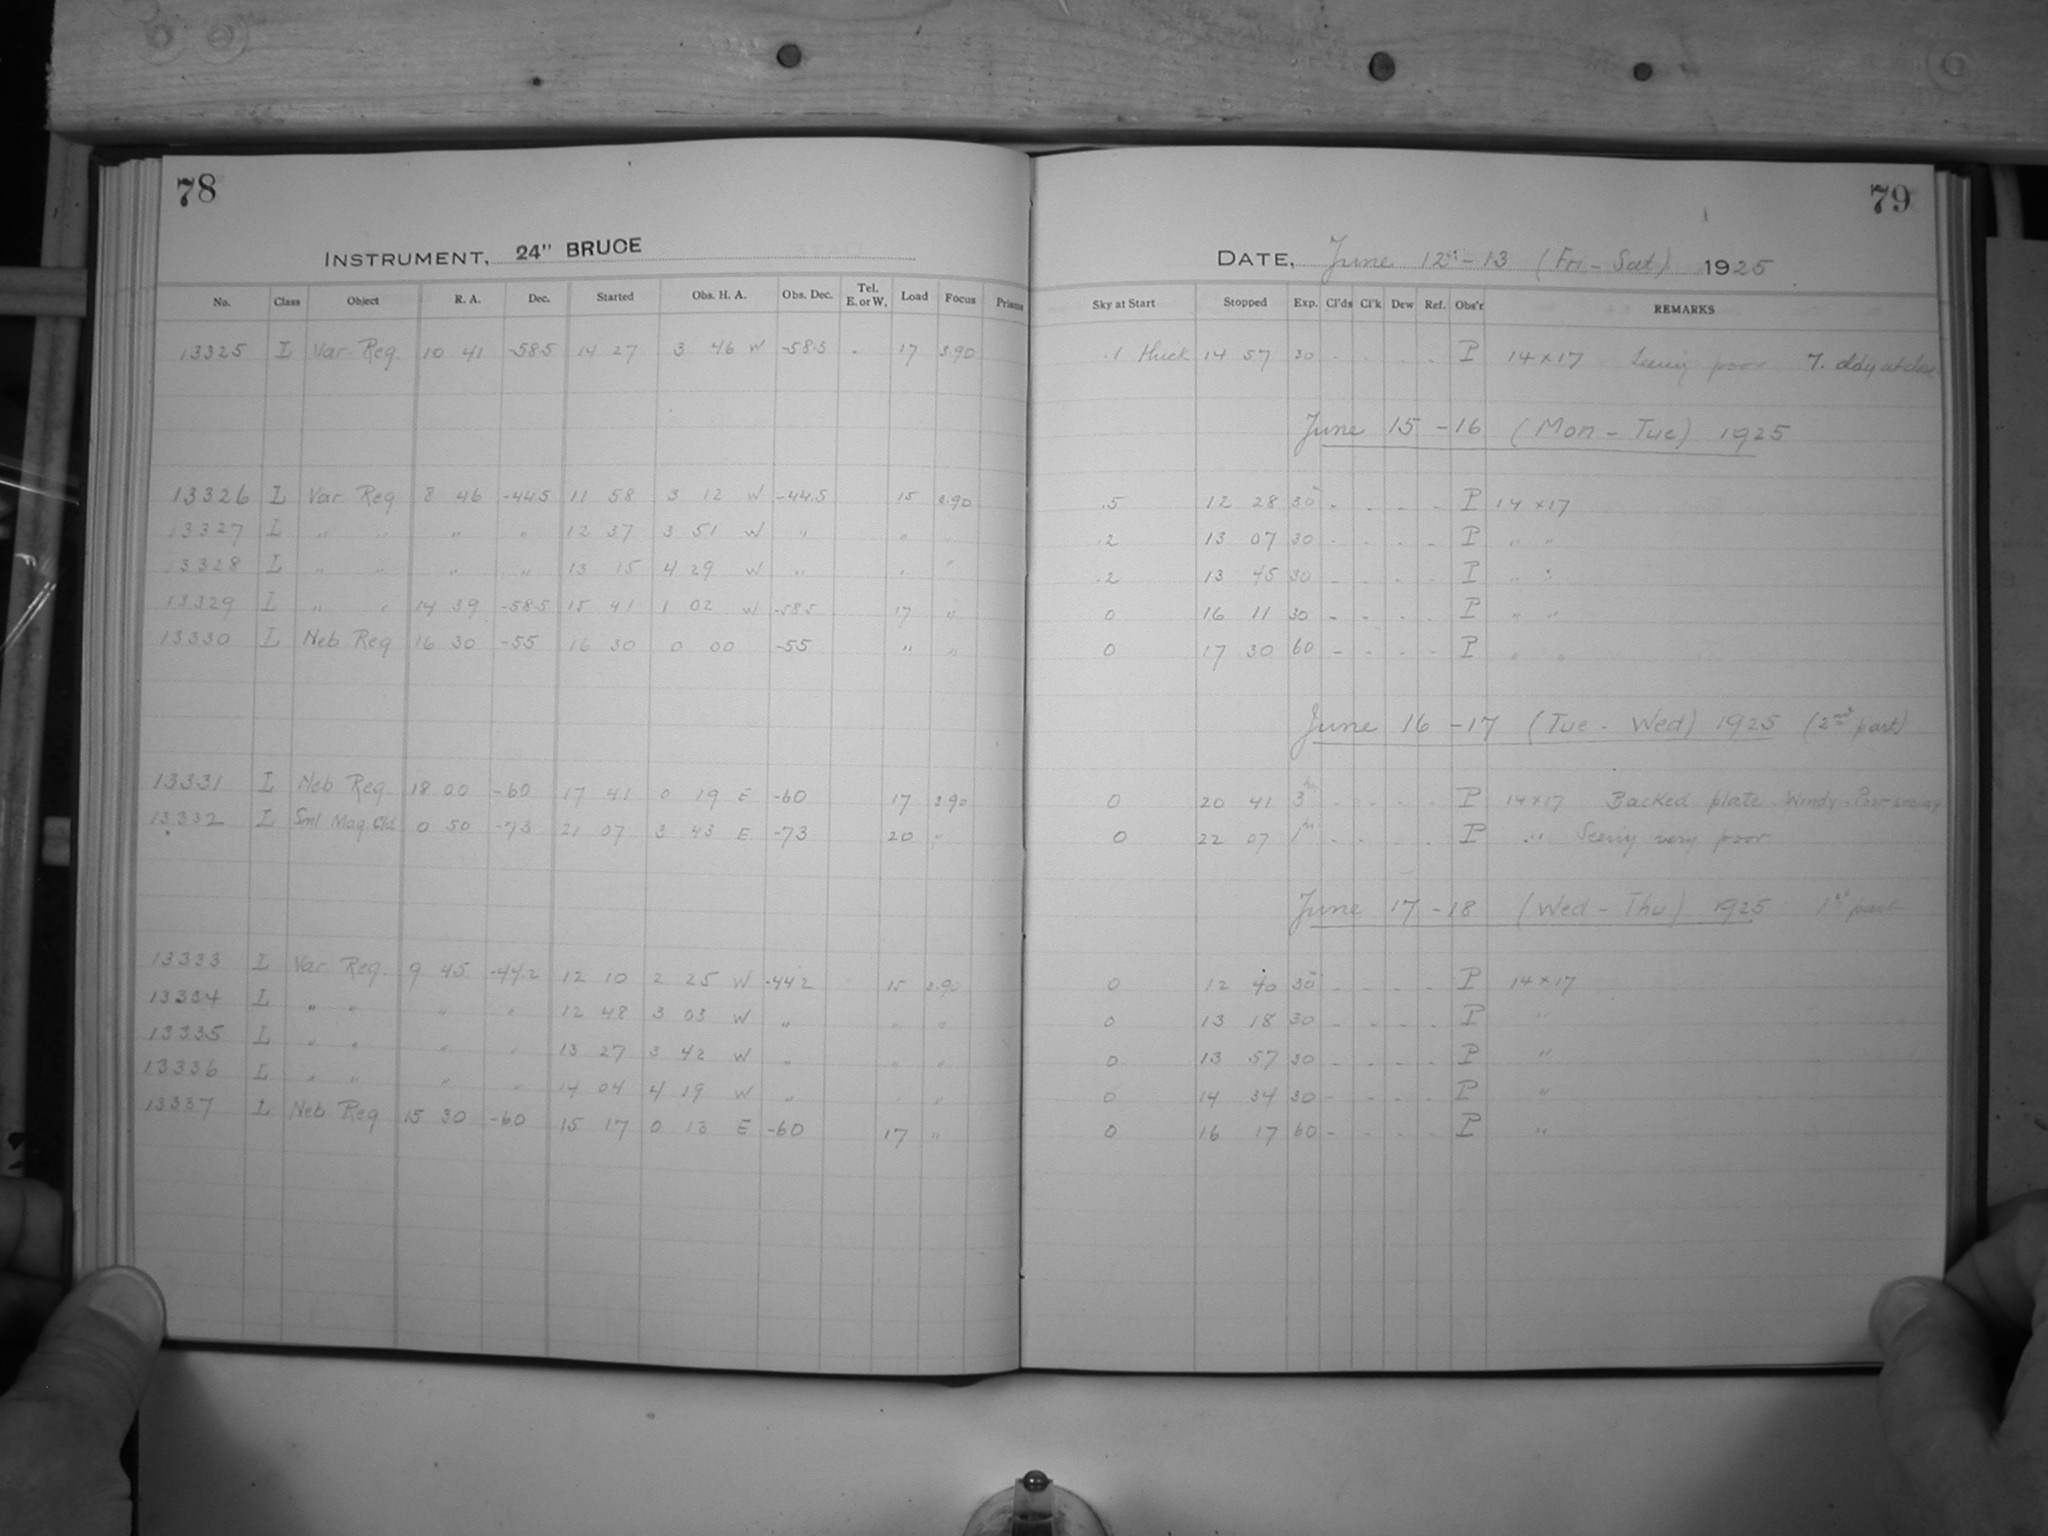 78
INSTRUMENT, 24" BRUCE
No. Class Object R. A. Dec. Started Obs. H. A. Obs. Dec. Tel. E. or W. Load Focus Prisms
13325 L Var Reg. 10 41 -58.5 14 27 3 46 W -58.5 - 17 3.90
13326 L Var Reg 8 46 -44.5 11 58 3 12 W -44.5 15 3.90
13327 L " " " " 12 37 3 51 W " " "
13328 L " " " " 13 15 4 29 W " " "
13329 L " " 14 39 -58.5 15 41 1 02 W -58.5 17 "
13330 L Neb Reg 16 30 -55 16 30 0 00 -55 " "
13331 L Neb Reg. 18 00 -60 17 41 0 19 E -60 17 3.90
13332 L Sml Mag. Cld 0 50 -73 21 07 3 43 E -73 20 "
13333 L Var. Reg. 9 45 -44.2 12 10 2 25 W -44.2 15 3.90
13334 L " " " " 12 48 3 03 W " " "
13335 L " " " " 13 27 3 42 W " " "
13336 L " " " " 14 04 4 19 W " " "
13337 L Neb Reg 15 30 -60 15 17 0 13 E -60 17 "
79
DATE, June 12-13 (Fri-Sat) 1925
Sky at Start Stopped Exp. Cl'ds Cl'k Dew Ref. Obs'r REMARKS
.1 14 57 30 - - - - P 14x17 Seeing poor at close
June 15-16 (Mon-Tue) 1925
.5 12 28 30 - - - - P 14x17
.2 13 07 30 - - - - P " "
.2 13 45 30 - - - - P " "
0 16 11 30 - - - - P " "
0 17 30 60 - - - - P " "
June 16-17 (Tue-Wed) 1925 (2nd part)
0 20 41 3 - - - - P 14x17 Backed plate. Windy - Poor seeing
0 22 07 1 - - - - P " Seeing very poor.
June 17-18 (Wed-Thu) 1925 1st part
0 12 40 30 - - - - P 14x17
0 13 18 30 - - - - P "
0 13 57 30 - - - - P "
0 14 34 30 - - - - P "
0 16 17 60 - - - - P "